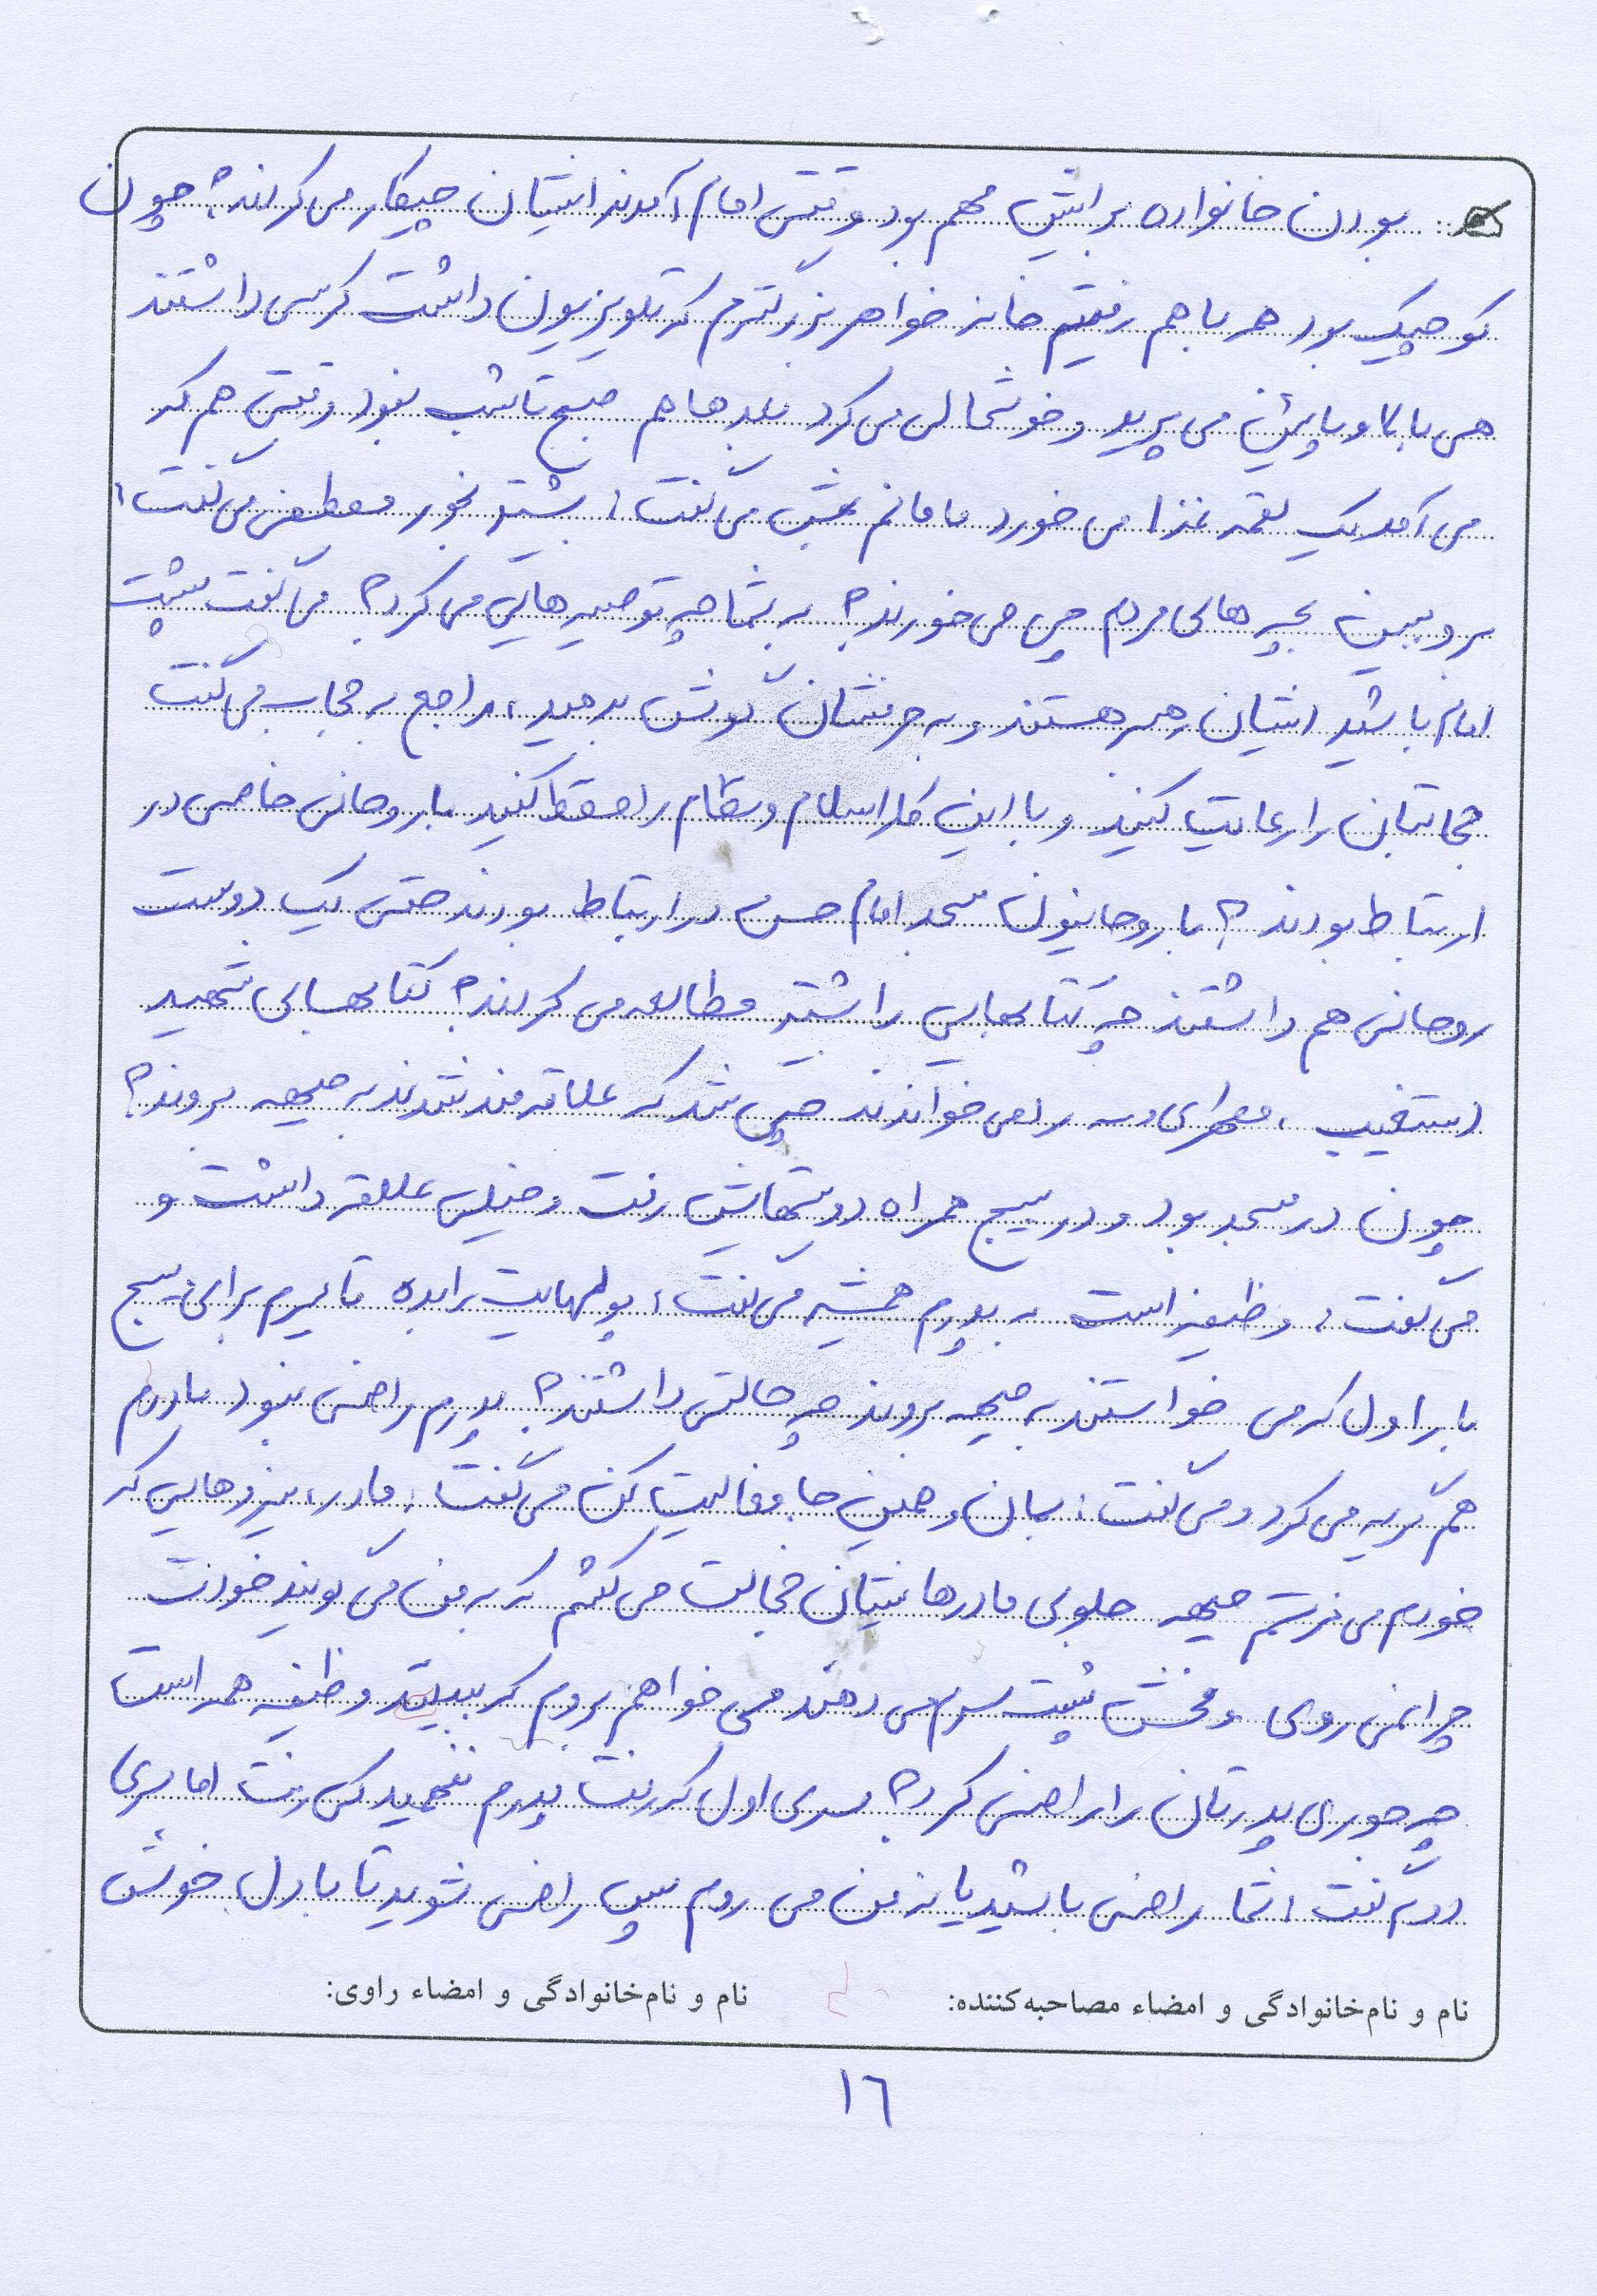 بودن خانواده برایش مهم بود وقتی امام آمدند ایشان چیکار می کردند؟ چون
کوچیک بود همه با هم رفتیم خانه خواهر بزرگترم که تلویزیون داشت کرسی داشتند
هی بالا و پایین می پرید و خوشحالی می کرد بعدها هم صبح تا شب نبود وقتی هم که
می آمد یک لقمه غذا می خورد مامانم بهش می گفت: بیشتر بخور مصطفی می گفت:
برو ببین بچه های مردم چی می خورند؟ به شما چه توصیه هایی می کرد؟ می گفت پشت
امام باشید ایشان رهبر هستند و به حرفشان گوش بدهید، راجع به حجاب می گفت
حجابتان را رعایت کنید و با این کار اسلام و نظام را حفظ کنید با روحانی خاصی در
ارتباط بودند؟ با روحانیون مسجد امام حسن در ارتباط بودند حتی یک دوست
روحانی هم داشتند چه کتابهایی را بیشتر مطالعه می کردند؟ کتابهای شهید
دستغیب، مطهری و ... را می خواندند چی شد که علاقه مند شدند به جبهه بروند؟
چون در مسجد بود و در بسیج همراه دوستهایش رفت و خیلی علاقه داشت و
می گفت: وظیفه است به پدرم همیشه می گفت: پولهایت را بده تا ببرم برای بسیج
بار اول که می خواستند به جبهه بروند چه حالتی داشتند؟ پدرم راضی نبود مادرم
هم گریه می کرد و می گفت: بمان و همین جا فعالیت کن می گفت: مادر، نیروهایی که
خودم می فرستم جبهه جلوی مادرهایشان خجالت می کشم که به من می گویند خودت
چرا نمی روی و فحش پشت سرم می دهند می خواهم بروم که ببینند وظیفه همه است
چه جوری پدرتان را راضی کرد؟ سری اول که رفت پدرم نفهمید کی رفت اما سری
دوم گفت: شما راضی باشید یا نه من می روم پس راضی شوید تا با دل خوش
نام و نام‌خانوادگی و امضاء مصاحبه‌کننده: نام و نام‌خانوادگی و امضاء راوی:
١٦